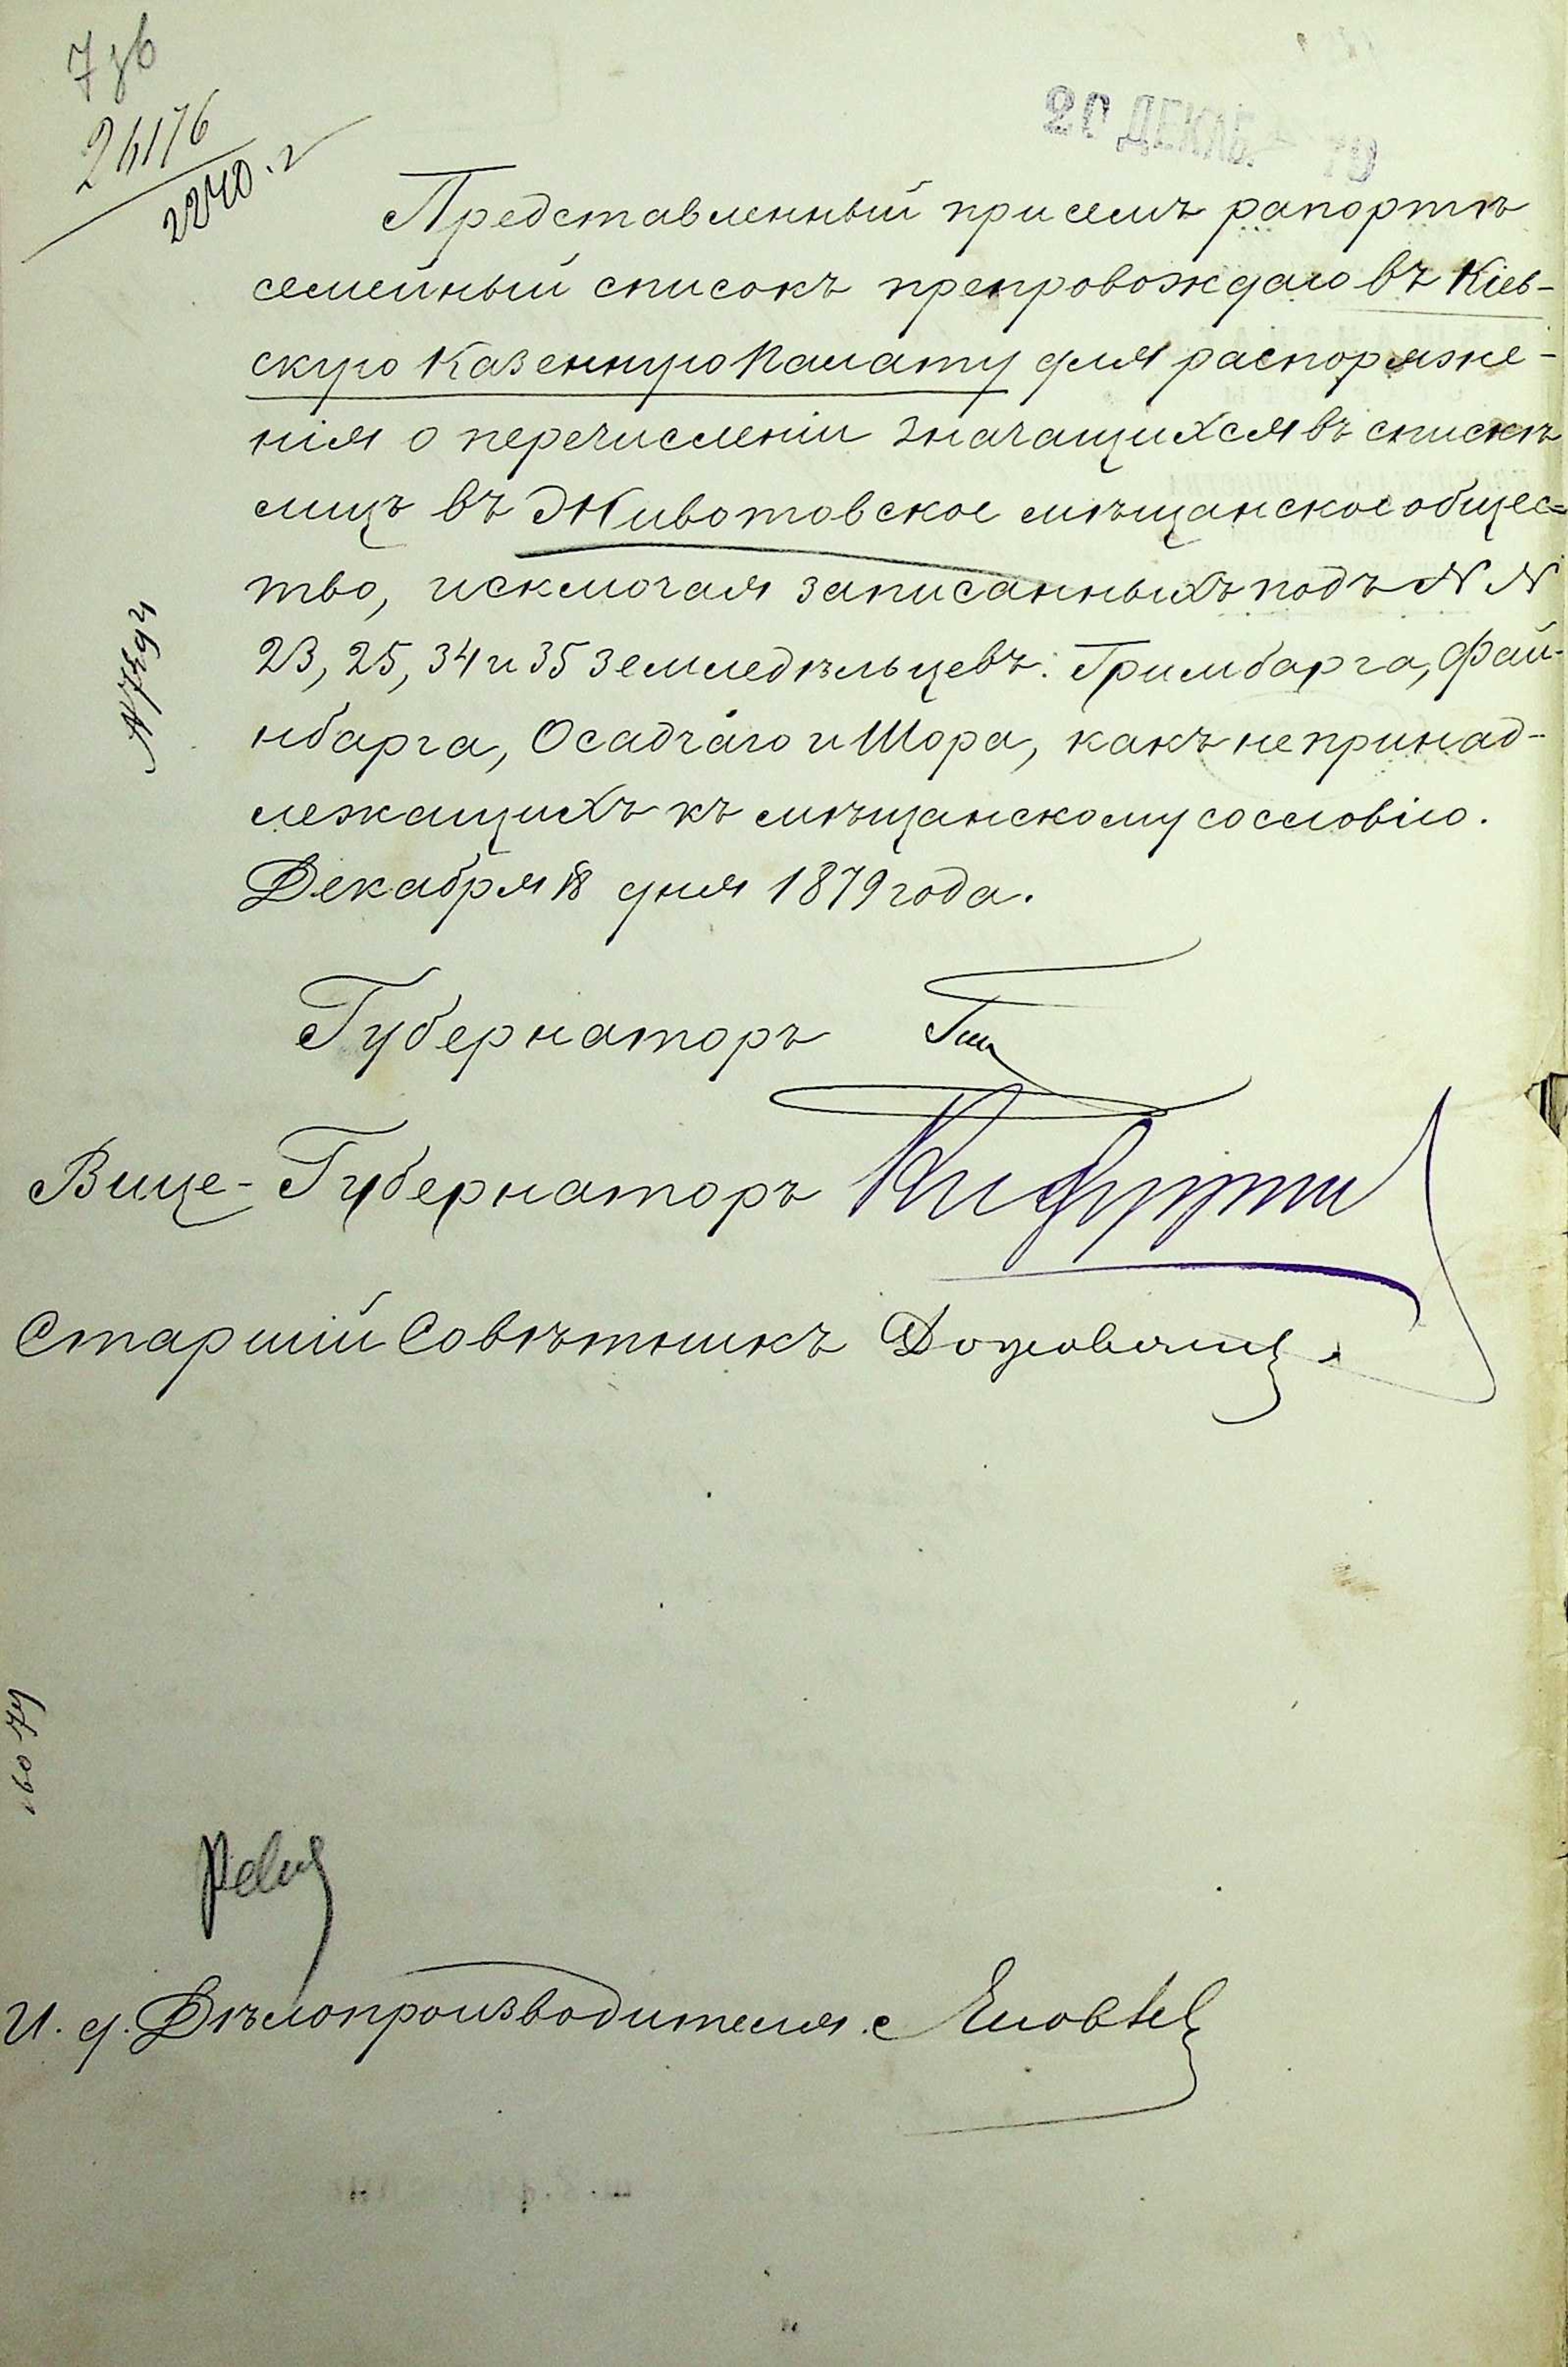 736
24176
2240.
20 ДЕКАБ. 79
Представленный при семъ рапортѣ
семейный списокъ препровождаю въ Кіев-
скую Казенную Палату для распоряже-
нія о перечисленіи значащихся въ спискѣ
лицъ въ Животовское мѣщанское общес=
тво, исключая записанныхъ подъ №№
23, 25, 34 и 35 земледѣльцевъ: Гримбарга, Фай-
нбарга, Осадчаго и Шора, какъ не принад-
лежащихъ къ мѣщанскому сословію.
Декабря 18 дня 1879 года.
Губернаторъ
Вице-Губернаторъ
Старшій Совѣтникъ
И. д. Дѣлопроизводителя